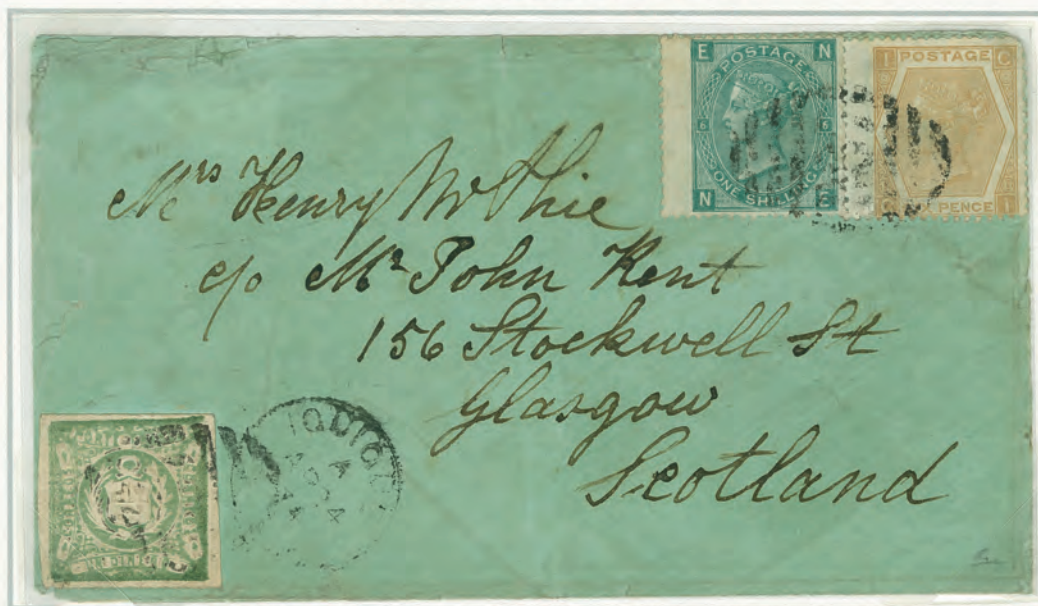 E N
POSTAGE
6 6
ONE SHILLING
N E
I C
POSTAGE
PENCE
C I
Mrs Henry McPhie
c/o Mr John Kent
156 Stockwell St
Glasgow
Scotland
IQUIQU
A
24